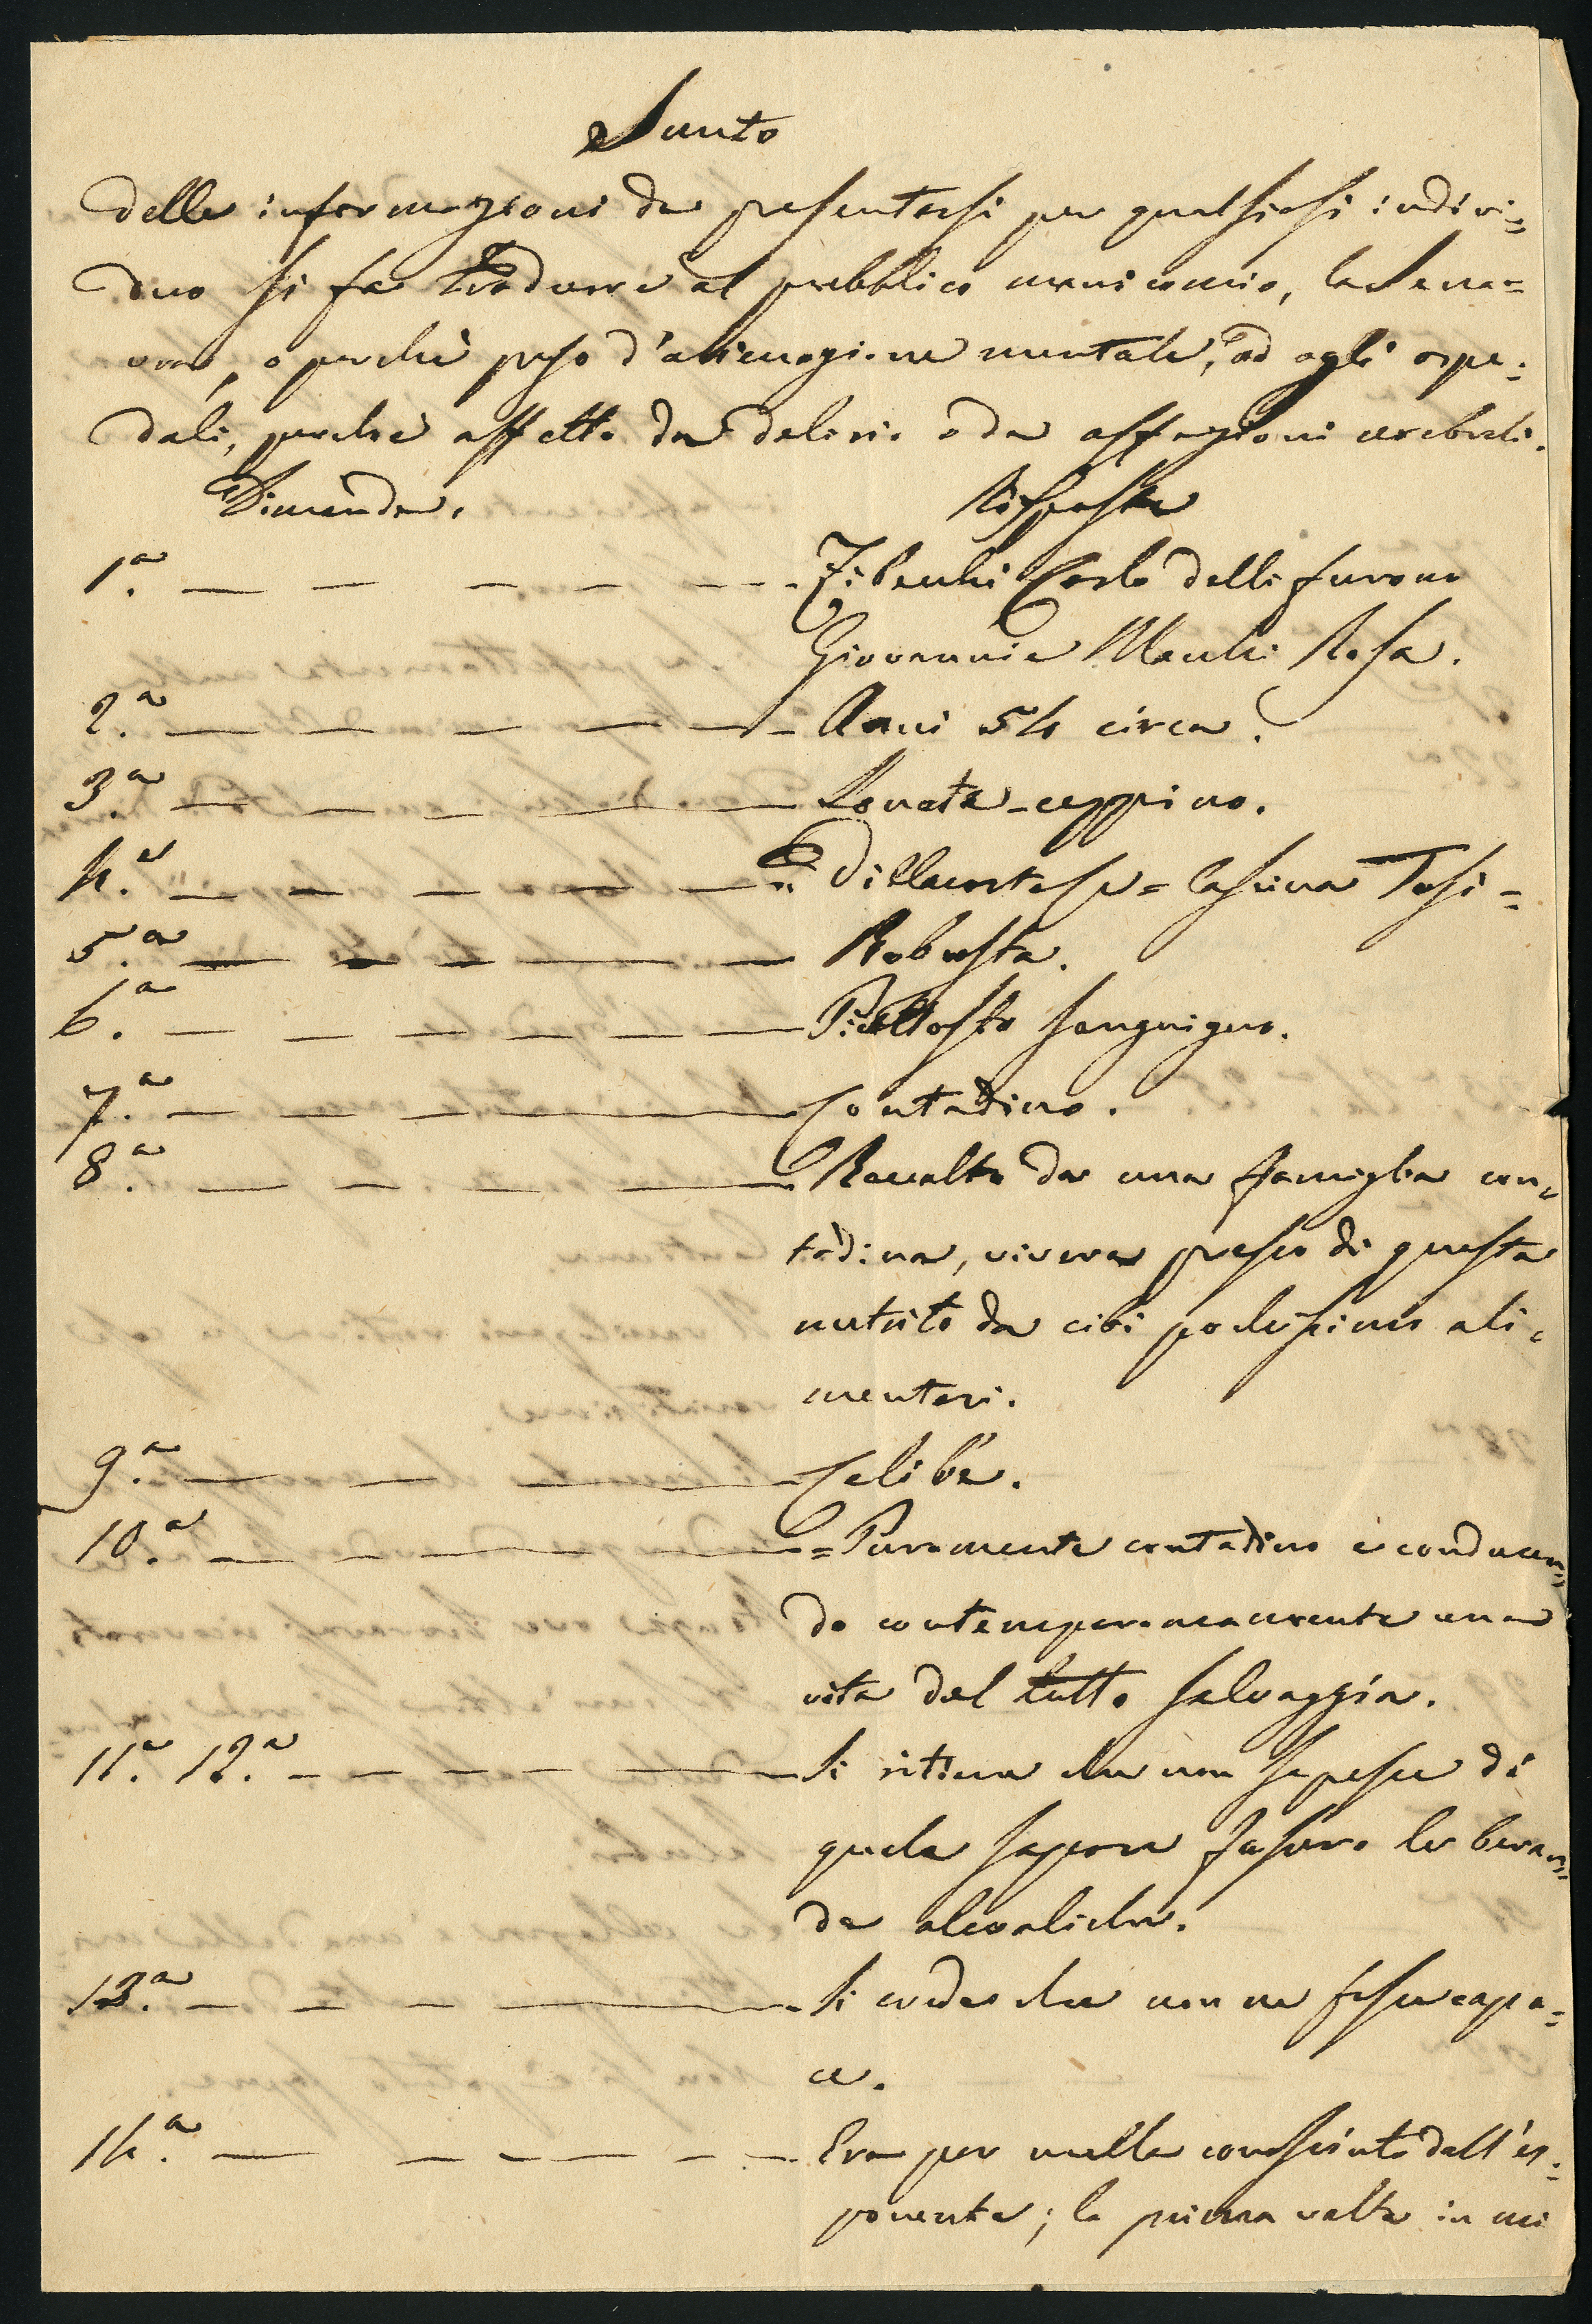 Sunto
delle informazioni da presentarsi per qualsiasi indivi=
duo si fa tradurre al pubblico manicomio, la Sena=
vra, o perchè preso d'alienazione mentale, od agli ospe=
dali, perchè affetto da delirio o da affezioni cerebrali.
Dimanda. Risposta
1.a — — — — — — Zibecchi Carlo delli furono
Giovanni e Macchi Rosa.
2.a — — — — — — Anni 54 circa.
3.a — — — — — Lonate-ceppino.
4.a — — — — — Villacortese = Cascina Tosi =
5.a — — — — — Robusta.
6.a — — — — — Piuttosto sanguigno.
7.a — — — — Contadino.
8.a — — — — Raccolto da una famiglia con=
tadina, viveva presso di questa
nutrito da cibi pochissimo ali=
mentari.
9.a — — — Celibe.
10.a — — — = Puramente contadino e conducen=
do contemporaneamente una
vita del tutto selvaggia.
11.a 12.a — — — — — Si ritiene che non sapesse di
quale sapore fossero le bevan=
de alcooliche.
13.a — — — — Si crede che non ne fosse capa=
ce.
14.a — — — — — — Era per nulla conosciuto dall'es=
ponente; la prima volta in cui